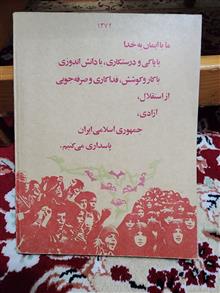 ۱۳۷۲
ما با ایمان به خدا
با پاکی و درستکاری، با دانش اندوزی
با کار و کوشش، فداکاری و صرفه‌جویی
از استقلال،
آزادی،
جمهوری اسلامی ایران
پاسداری می‌کنیم.